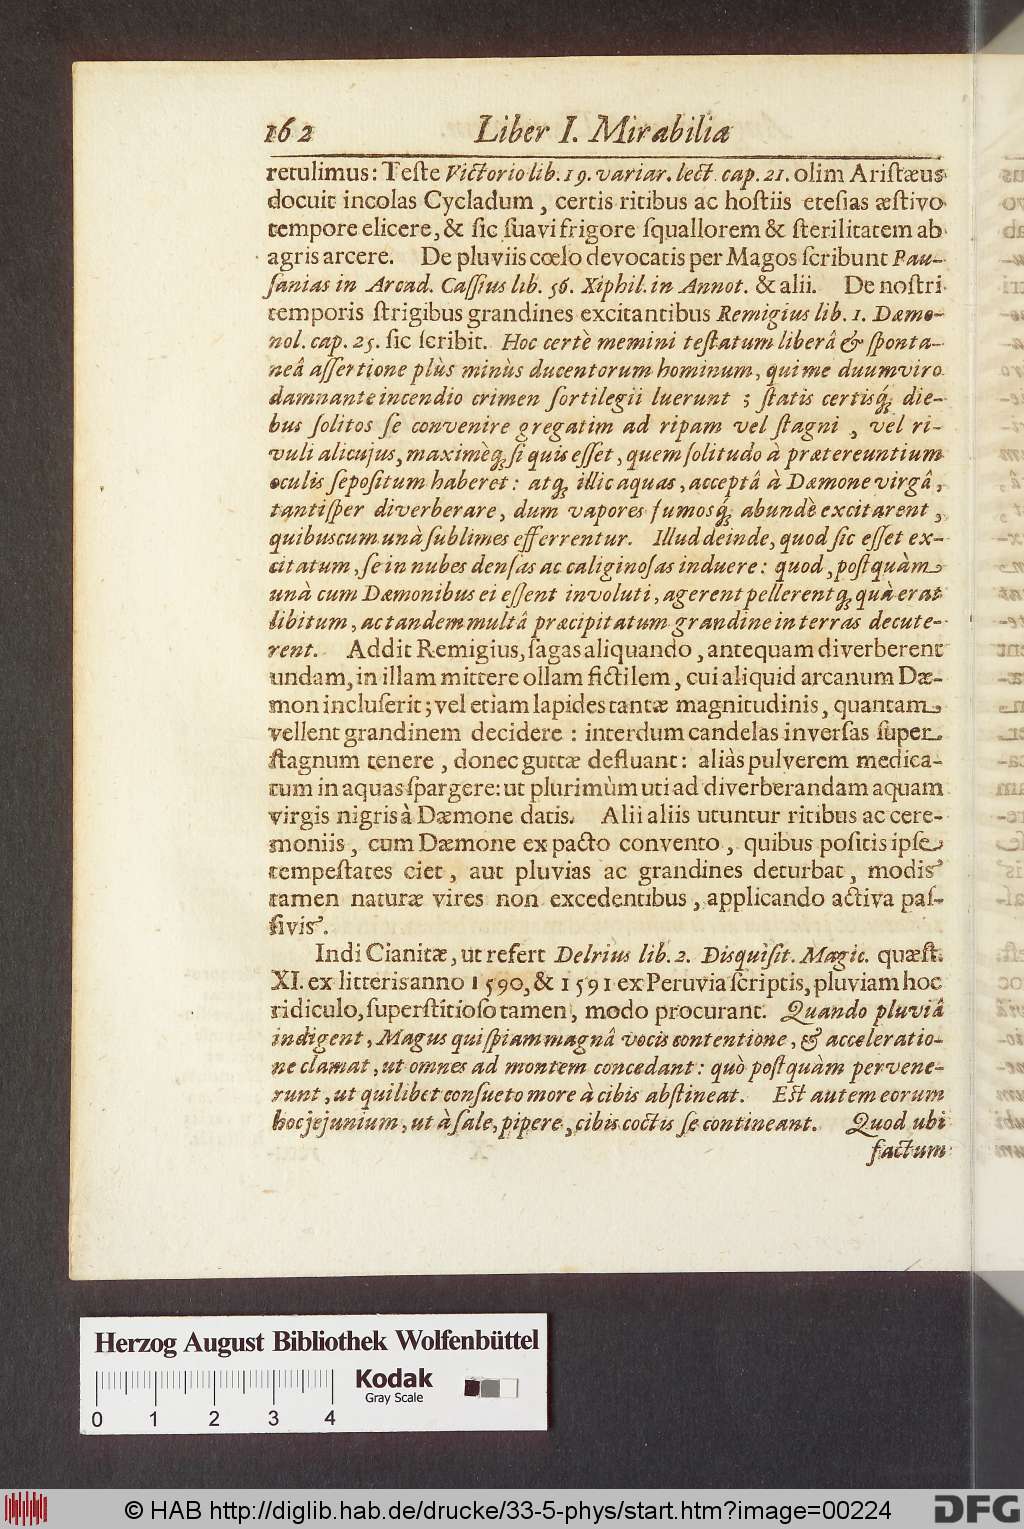 162 Liber I. Mirabilia
retulimus: Teſte Victorio lib. 19. variar. lect. cap. 21. olim Ariſtæus
docuit incolas Cycladum, certis ritibus ac hoſtiis eteſias æſtivo
tempore elicere, & ſic ſuavi frigore ſquallorem & ſterilitatem ab
agris arcere. De pluviis cœlo devocatis per Magos ſcribunt Pau-
ſanias in Arcad. Caſſius lib. 56. Xiphil. in Annot. & alii. De noſtri
temporis ſtrigibus grandines excitantibus Remigius lib. 1. Dæmo-
nol. cap. 25. ſic ſcribit. Hoc certè memini teſtatum liberâ & ſponta-
neâ aſſertione plùs minùs ducentorum hominum, qui me duumviro
damnante incendio crimen ſortilegii luerunt; ſtatis certisq́; die-
bus ſolitos ſe convenire gregatim ad ripam vel ſtagni, vel ri-
vuli alicujus, maximèq; ſi quis eſſet, quem ſolitudo à prætereuntium
oculis ſepoſitum haberet: atq; illic aquas, acceptâ à Dæmone virgâ,
tantiſper diverberare, dum vapores fumosq́; abundè excitarent,
quibuscum unà ſublimes efferrentur. Illud deinde, quod ſic eſſet ex-
citatum, ſe in nubes denſas ac caliginoſas induere: quod, poſtquàm
unà cum Dæmonibus ei eſſent involuti, agerent pellerentq; quà erat
libitum, ac tandem multâ præcipitatum grandine in terras decute-
rent. Addit Remigius, ſagas aliquando, antequam diverberent
undam, in illam mittere ollam fictilem, cui aliquid arcanum Dæ-
mon incluſerit; vel etiam lapides tantæ magnitudinis, quantam
vellent grandinem decidere: interdum candelas inverſas ſuper
ſtagnum tenere, donec guttæ defluant: aliàs pulverem medica-
tum in aquas ſpargere: ut plurimùm uti ad diverberandam aquam
virgis nigris à Dæmone datis. Alii aliis utuntur ritibus ac cere-
moniis, cum Dæmone ex pacto convento, quibus poſitis ipſe
tempeſtates ciet, aut pluvias ac grandines deturbat, modis
tamen naturæ vires non excedentibus, applicando activa paſ-
ſivis.
Indi Cianitæ, ut refert Delrius lib. 2. Disquiſit. Magic. quæſt.
XI. ex litteris anno 1590, & 1591 ex Peruvia ſcriptis, pluviam hoc
ridiculo, ſuperſtitioſo tamen, modo procurant. Quando pluviâ
indigent, Magus quiſpiam magnâ vocis contentione, & acceleratio-
ne clamat, ut omnes ad montem concedant: quò poſtquàm pervene-
runt, ut quilibet conſueto more à cibis abſtineat. Est autem eorum
hoc jejunium, ut à ſale, pipere, cibis coctis ſe contineant. Quod ubi
factum
Herzog August Bibliothek Wolfenbüttel
Kodak
Gray Scale
0 1 2 3 4
© HAB http://diglib.hab.de/drucke/33-5-phys/start.htm?image=00224
DFG